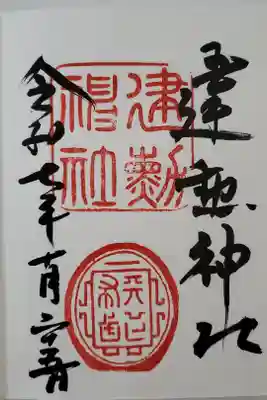 建勲神社
令和七年十月二十五日
建勲
神社